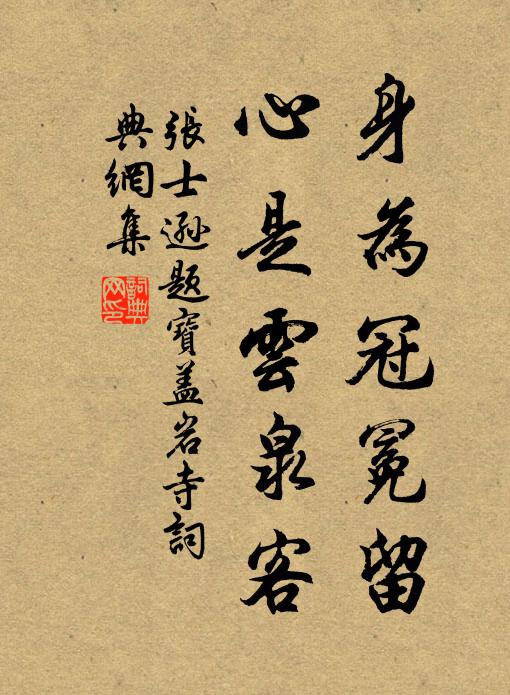 身為冠冕留
心是雲泉客
張士遜題寶蓋岩寺詞
典網集
詞典
网印